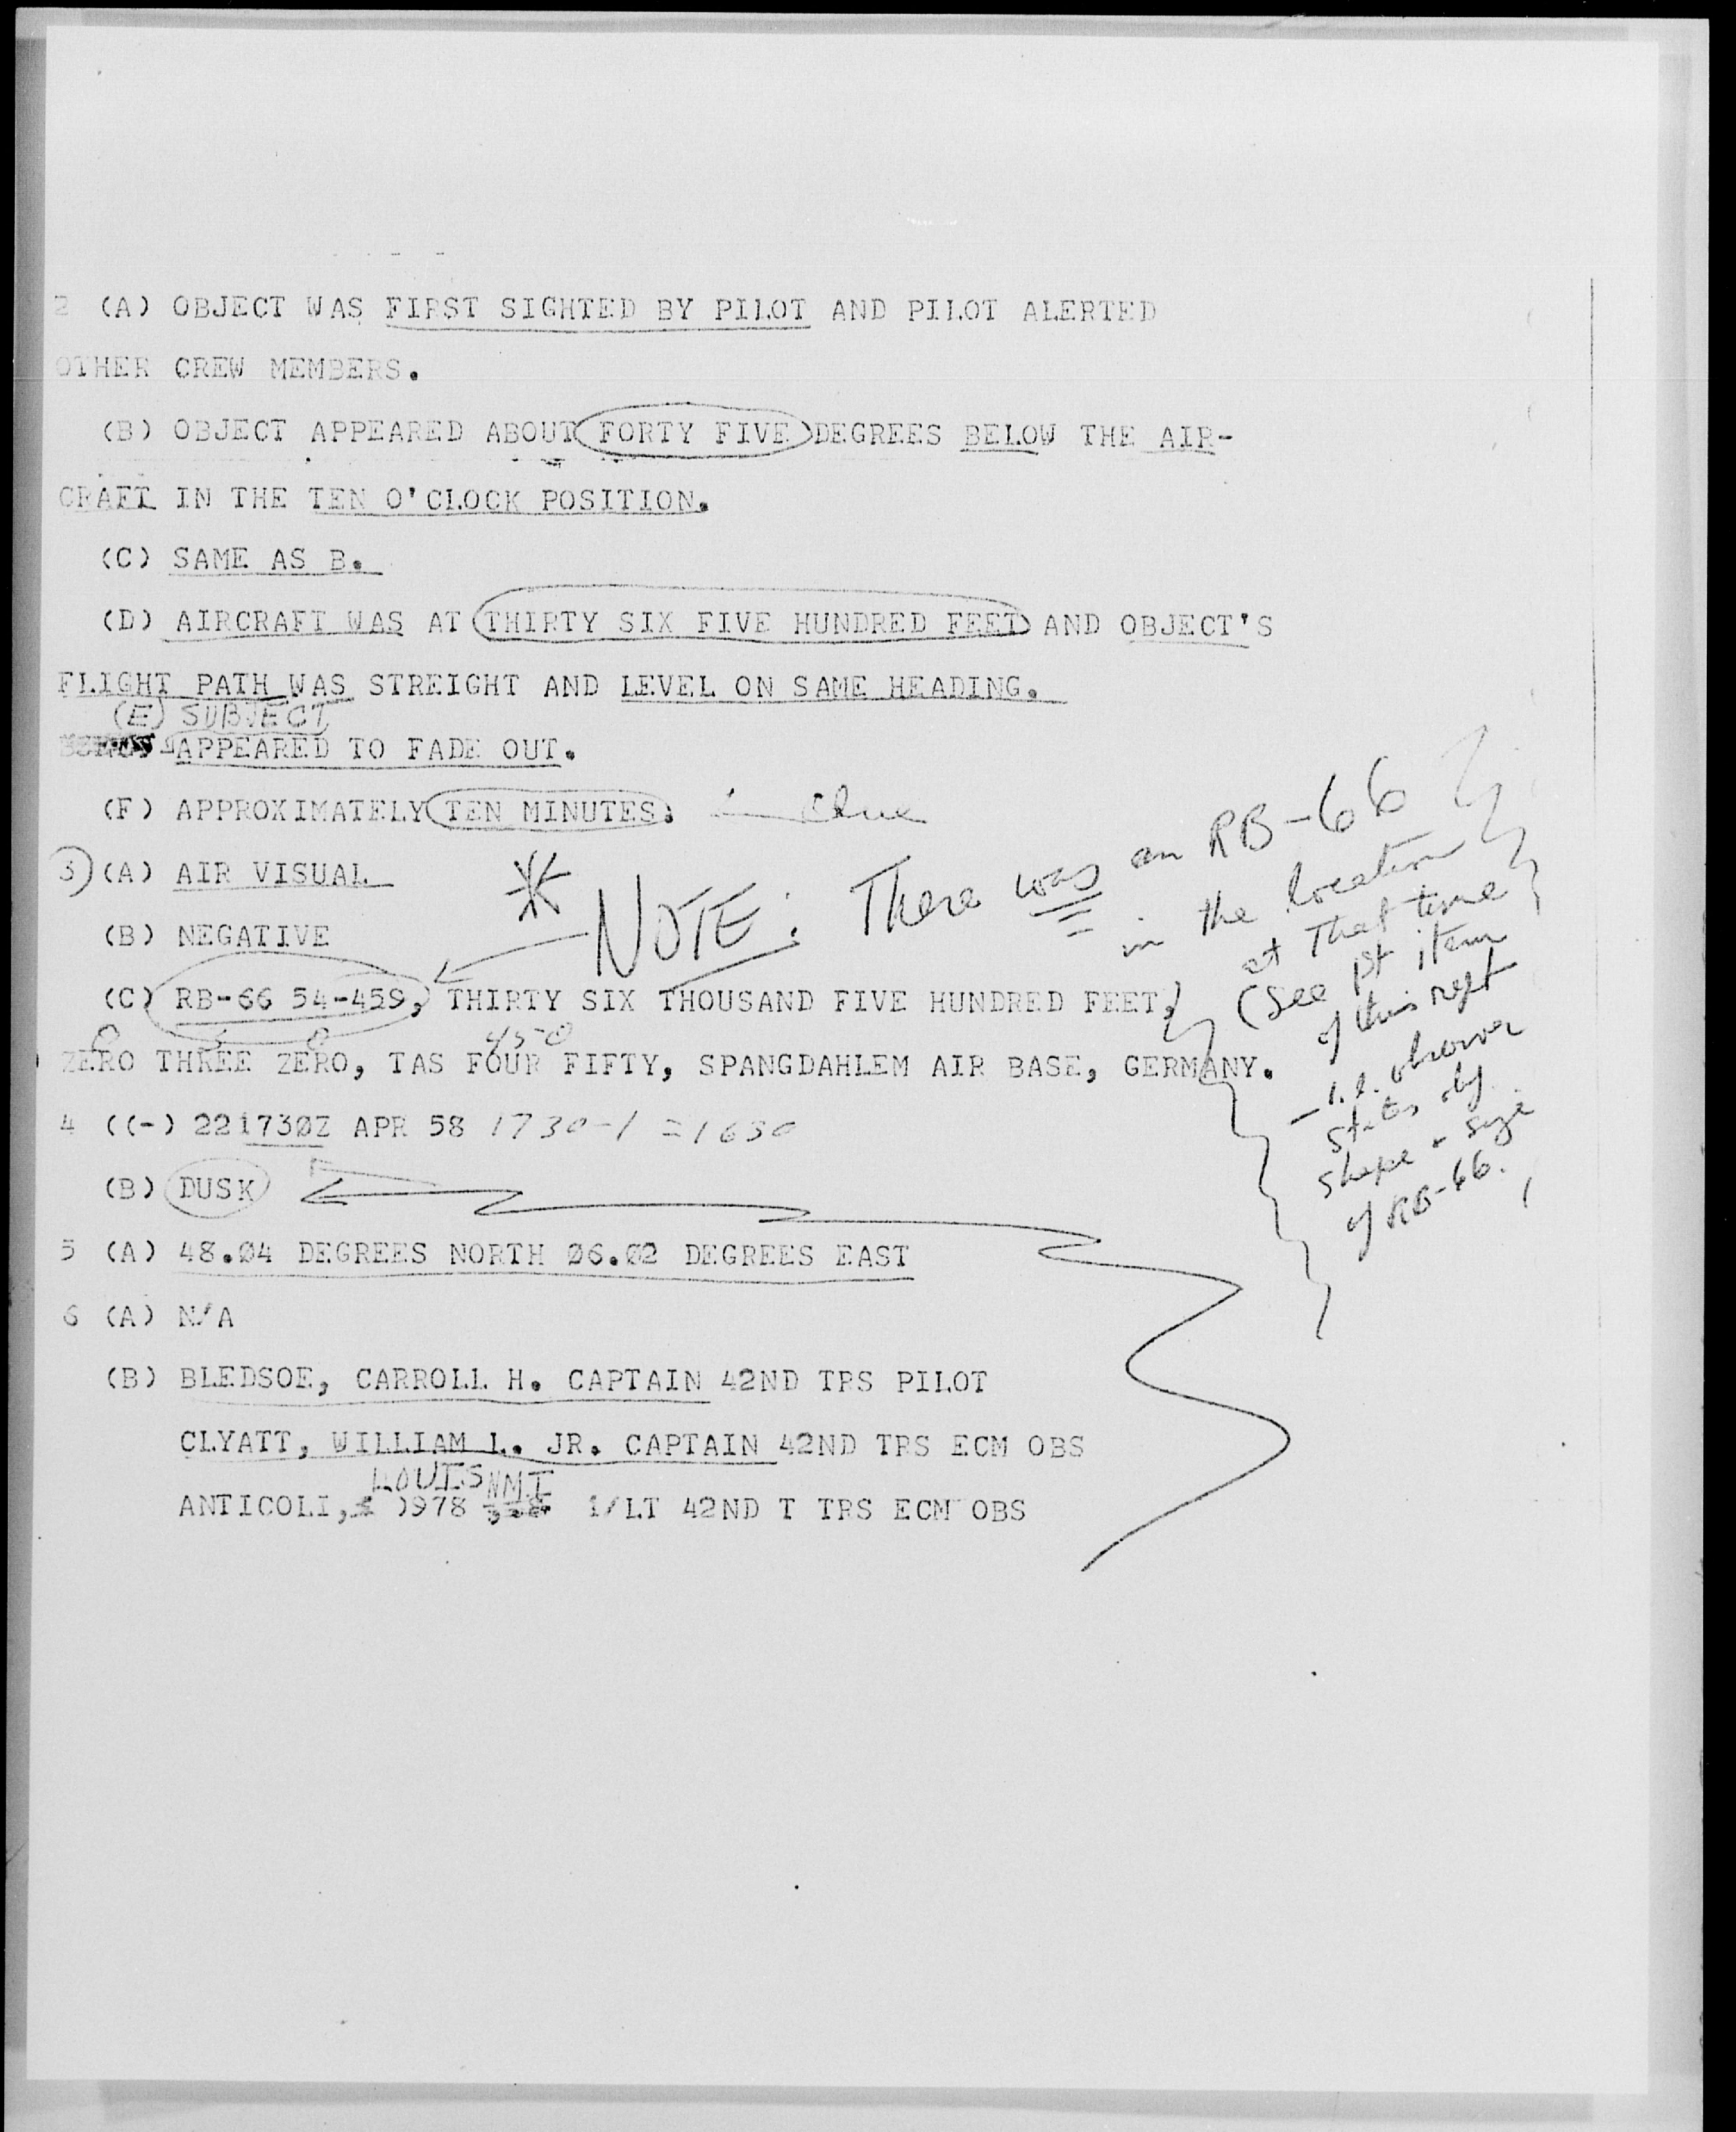 2 (A) OBJECT WAS FIRST SIGHTED BY PILOT AND PILOT ALERTED
OTHER CREW MEMBERS.
(B) OBJECT APPEARED ABOUT FORTY FIVE DEGREES BELOW THE AIR-
CRAFT IN THE TEN O'CLOCK POSITION.
(C) SAME AS B.
(D) AIRCRAFT WAS AT THIRTY SIX FIVE HUNDRED FEET AND OBJECT'S
FLIGHT PATH WAS STREIGHT AND LEVEL ON SAME HEADING.
(E) SUBJECT
APPEARED TO FADE OUT.
(F) APPROXIMATELY TEN MINUTES. Clue
3 (A) AIR VISUAL
(B) NEGATIVE
* NOTE: There was an RB-66
in the location
at that time
(See 1st item
of this rept
- i.e. observer
states obj
shape & size
of RB-66.
(C) RB-66 54-459, THIRTY SIX THOUSAND FIVE HUNDRED FEET,
0 3 0 450
ZERO THREE ZERO, TAS FOUR FIFTY, SPANGDAHLEM AIR BASE, GERMANY.
4 ((-) 221730Z APR 58 1730-1 = 1630
(B) DUSK
5 (A) 48.04 DEGREES NORTH 06.02 DEGREES EAST
6 (A) N/A
(B) BLEDSOE, CARROLL H. CAPTAIN 42ND TRS PILOT
CLYATT, WILLIAM L. JR. CAPTAIN 42ND TRS ECM OBS
LOUIS NMI
ANTICOLI, )978 1/LT 42ND T TRS ECM OBS